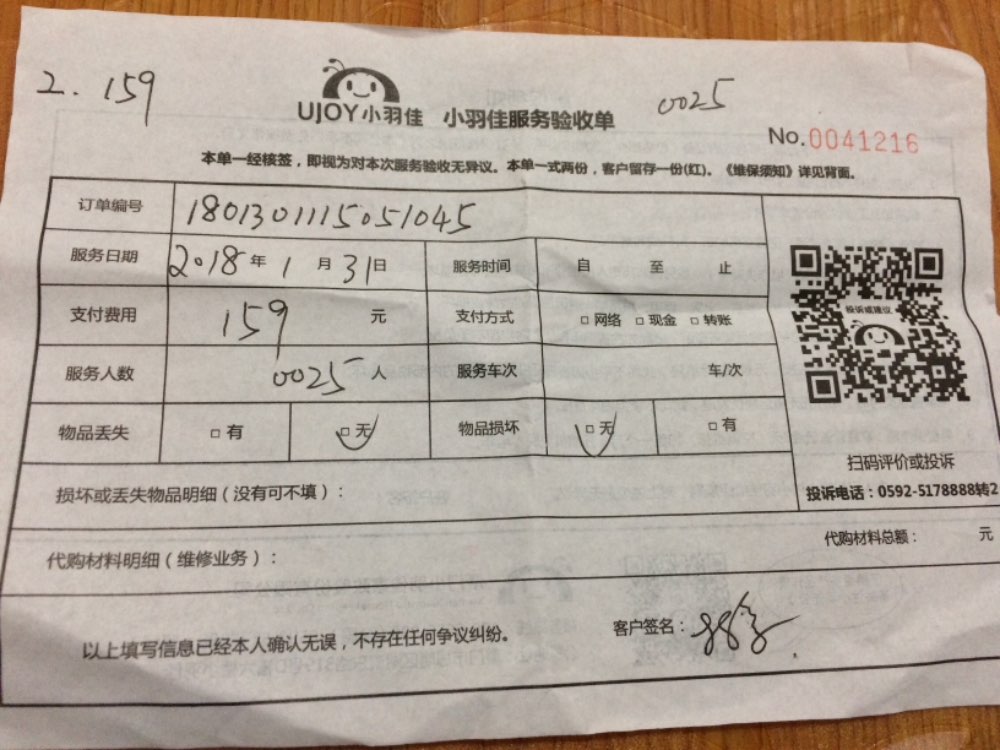 2. 159
0025
UJOY小羽佳 小羽佳服务验收单
No.0041216
本单一经核签，即视为对本次服务验收无异议。本单一式两份，客户留存一份(红)。《维保须知》详见背面。
订单编号 1801301115051045
服务日期 2018年1月31日 服务时间 自 至 止
支付费用 159 元 支付方式 □网络 □现金 □转账
服务人数 0025 人 服务车次 车/次
物品丢失 □有 □无 物品损坏 □无 □有
投诉或建议
扫码评价或投诉
投诉电话：0592-5178888转2
损坏或丢失物品明细（没有可不填）：
代购材料明细（维修业务）：
代购材料总额： 元
以上填写信息已经本人确认无误，不存在任何争议纠纷。
客户签名：